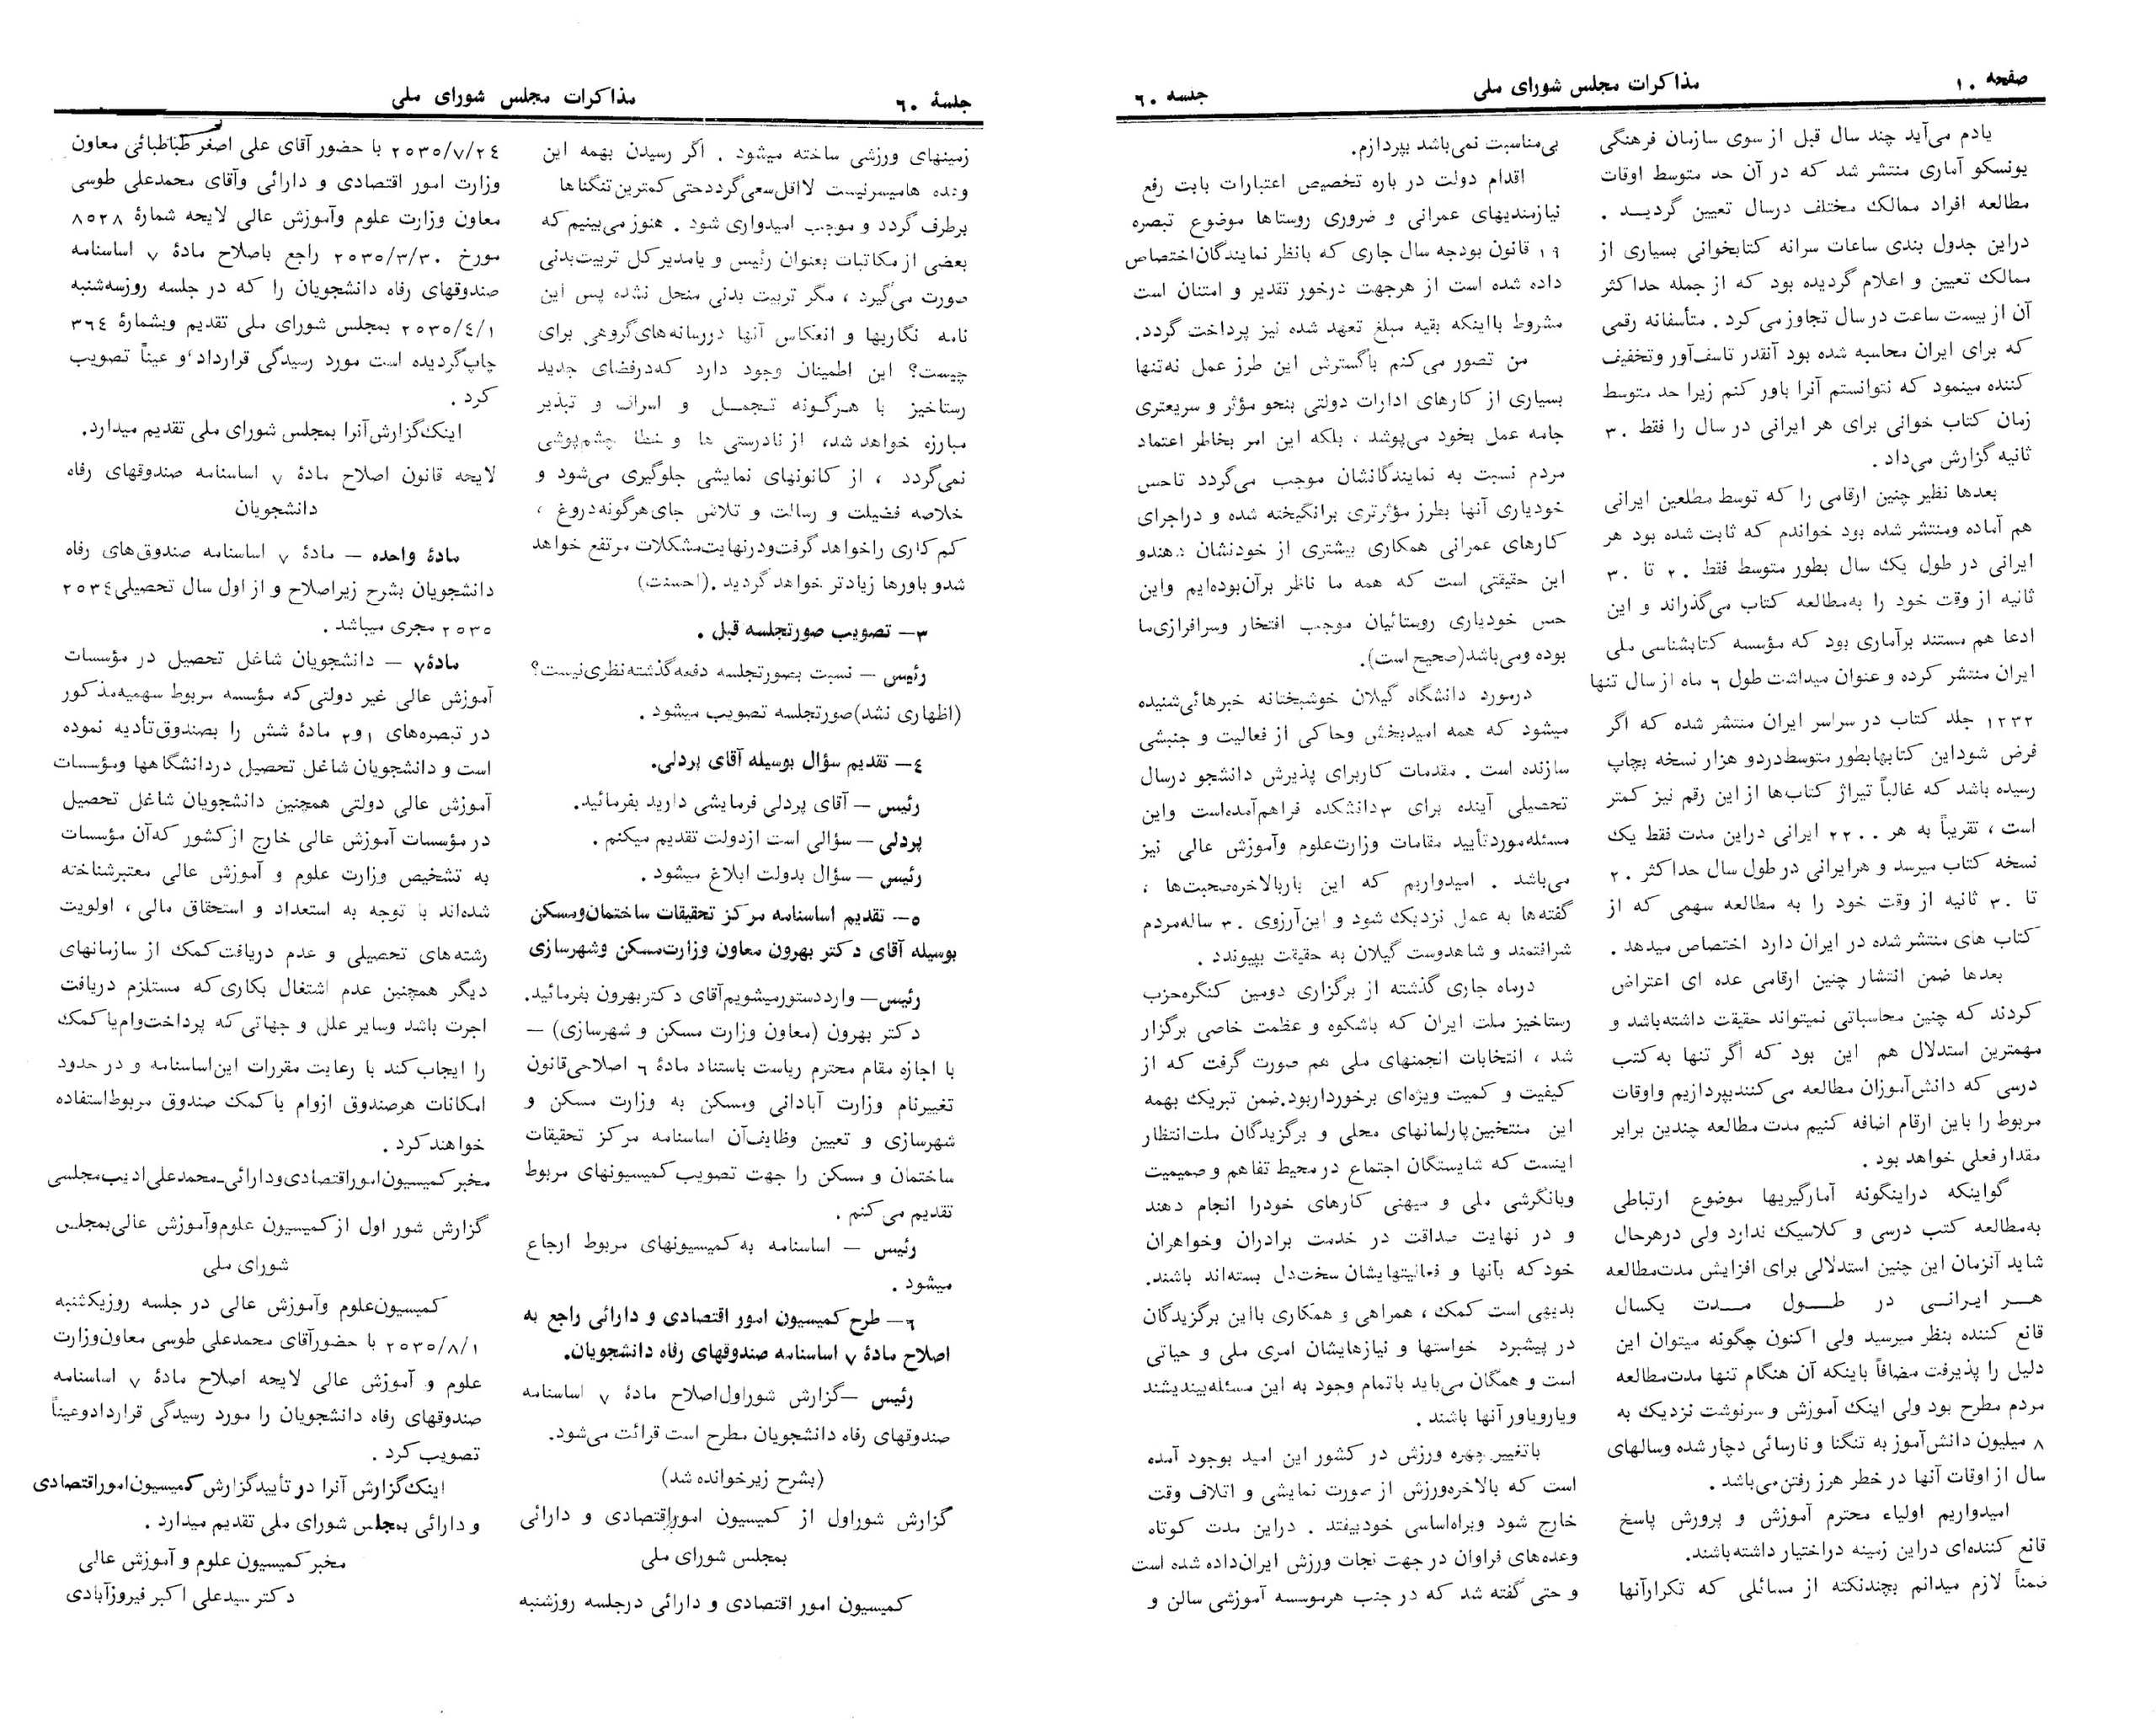 صفحه ۱۰
مذاکرات مجلس شورای ملی
جلسه ۶۰
یادم می‌آید چند سال قبل از سوی سازمان فرهنگی
یونسکو آماری منتشر شد که در آن حد متوسط اوقات
مطالعه افراد ممالک مختلف درسال تعیین گردیـــد .
دراین جدول بندی ساعات سرانه کتابخوانی بسیاری از
ممالک تعیین و اعلام گردیده بود که از جمله حداکثر
آن از بیست ساعت در سال تجاوز می‌کرد . متأسفانه رقمی
که برای ایران محاسبه شده بود آنقدر تاسف‌آور وتخفیف
کننده مینمود که نتوانستم آنرا باور کنم زیرا حد متوسط
زمان کتاب خوانی برای هر ایرانی در سال را فقط ۳۰
ثانیه گزارش می‌داد .
بعدها نظیر چنین ارقامی را که توسط مطلعین ایرانی
هم آماده ومنتشر شده بود خواندم که ثابت شده بود هر
ایرانی در طول یک سال بطور متوسط فقط ۲۰ تا ۳۰
ثانیه از وقت خود را به‌مطالعه کتاب می‌گذراند و این
ادعا هم مستند برآماری بود که مؤسسه کتابشناسی ملی
ایران منتشر کرده و عنوان میداشت طول ۶ ماه از سال تنها
۱۲۳۲ جلد کتاب در سراسر ایران منتشر شده که اگر
فرض شوداین کتابهابطور متوسط‌دردو هزار نسخه بچاپ
رسیده باشد که غالباً تیراژ کتاب‌ها از این رقم نیز کمتر
است ، تقریباً به هر ۲۲۰۰ ایرانی دراین مدت فقط یک
نسخه کتاب میرسد و هرایرانی در طول سال حداکثر ۲۰
تا ۳۰ ثانیه از وقت خود را به مطالعه سهمی که از
کتاب های منتشر شده در ایران دارد اختصاص میدهد .
بعدها ضمن انتشار چنین ارقامی عده ای اعتراض
کردند که چنین محاسباتی نمیتواند حقیقت داشته‌باشد و
مهمترین استدلال هم این بود که اگر تنها به‌کتب
درسی که دانش‌آموزان مطالعه می‌کنندبپردازیم واوقات
مربوط را باین ارقام اضافه کنیم مدت مطالعه چندین برابر
مقدار فعلی خواهد بود .
گواینکه دراینگونه آمارگیریها موضوع ارتباطی
به‌مطالعه کتب درسی و کلاسیک ندارد ولی درهرحال
شاید آنزمان این چنین استدلالی برای افزایش مدت‌مطالعه
هـــر ایـرانـــی در طــــول مـــدت یکسال
قانع کننده بنظر میرسید ولی اکنون چگونه میتوان این
دلیل را پذیرفت مضافاً باینکه آن هنگام تنها مدت‌مطالعه
مردم مطرح بود ولی اینک آموزش و سرنوشت نزدیک به
۸ میلیون دانش‌آموز به تنگنا و نارسائی دچار شده وسالهای
سال از اوقات آنها در خطر هرز رفتن می‌باشد .
امیدواریم اولیاء محترم آموزش و پرورش پاسخ
قانع کننده‌ای دراین زمینه دراختیار داشته‌باشند.
ضمناً لازم میدانم بچندنکته از مسائلی که تکرارآنها
بی‌مناسبت نمی‌باشد بپردازم.
اقدام دولت در باره تخصیص اعتبارات بابت رفع
نیازمندیهای عمرانی و ضروری روستاها موضوع تبصره
۱۹ قانون بودجه سال جاری که بانظر نمایندگان‌اختصاص
داده شده است از هرجهت درخور تقدیر و امتنان است
مشروط بااینکه بقیه مبلغ تعهد شده نیز پرداخت گردد.
من تصور می‌کنم باگسترش این طرز عمل نه‌تنها
بسیاری از کارهای ادارات دولتی بنحو مؤثر و سریعتری
جامه عمل بخود می‌پوشد ، بلکه این امر بخاطر اعتماد
مردم نسبت به نمایندگانشان موجب می‌گردد تاحس
خودیاری آنها بطرز مؤثرتری برانگیخته شده و دراجرای
کارهای عمرانی همکاری بیشتری از خودنشان دهندو
این حقیقتی است که همه ما ناظر برآن‌بوده‌ایم واین
حس خودیاری روستائیان موجب افتخار وسرافرازی‌ما
بوده ومی‌باشد(صحیح است).
درمورد دانشگاه گیلان خوشبختانه خبرهائی‌شنیده
میشود که همه امیدبخش وحاکی از فعالیت و جنبشی
سازنده است . مقدمات کاربرای پذیرش دانشجو درسال
تحصیلی آینده برای ۳دانشکده فراهم‌آمده‌است واین
مسئله‌موردتأیید مقامات وزارت‌علوم وآموزش عالی نیز
می‌باشد . امیدواریم که این باربالاخره‌صحبت‌ها ،
گفته‌ها به عمل نزدیک شود و این‌آرزوی ۳۰ ساله‌مردم
شرافتمند و شاهدوست گیلان به حقیقت بپیوندد .
درماه جاری گذشته از برگزاری دومین کنگره‌حزب
رستاخیز ملت ایران که باشکوه و عظمت خاصی برگزار
شد ، انتخابات انجمنهای ملی هم صورت گرفت که از
کیفیت و کمیت ویژه‌ای برخورداربود.ضمن تبریک بهمه
این منتخبین‌پارلمانهای محلی و برگزیدگان ملت‌انتظار
اینست که شایستگان اجتماع در محیط تفاهم و صمیمیت
وبانگرشی ملی و میهنی کارهای خودرا انجام دهند
و در نهایت صداقت در خدمت برادران وخواهران
خود‌که بآنها و فعالیتهایشان سخت‌دل بسته‌اند باشند.
بدیهی است کمک ، همراهی و همکاری بااین برگزیدگان
در پیشبرد خواستها و نیازهایشان امری ملی و حیاتی
است و همگان می‌باید باتمام وجود به این مسئله‌بیندیشند
ویاروباور آنها باشند .
باتغییر چهره ورزش در کشور این امید بوجود آمده
است که بالاخره‌ورزش از صورت نمایشی و اتلاف وقت
خارج شود وبراه‌اساسی خودبیفتد . دراین مدت کوتاه
وعده‌های فراوان در جهت نجات ورزش ایران‌داده شده است
و حتی گفته شد که در جنب هرموسسه آموزشی سالن و
جلسهٔ ۶۰
مذاکرات مجلس شورای ملی
زمینهای ورزشی ساخته میشود . اگر رسیدن بهمه این
وعده هامیسرنیست لااقل‌سعی‌گرددحتی کمترین‌تنگناها
برطرف گردد و موجب امیدواری شود . هنوز می‌بینیم که
بعضی از مکاتبات بعنوان رئیس و یامدیر کل تربیت‌بدنی
صورت می‌گیرد ، مگر تربیت بدنی منحل نشده پس این
نامه نگاریها و انعکاس آنها دررسانه‌های‌گروهی برای
چیست؟ این اطمینان وجود دارد که‌درفضای جدید
رستاخیز با هـرگـونه تـجمـــل و اسراف و تبذیر
مبارزه خواهد شد، از نادرستی ها و خطا چشم‌پوشی
نمی‌گردد ، از کانونهای نمایشی جلوگیری می‌شود و
خلاصه فضیلت و رسالت و تلاش جای‌هرگونه‌دروغ ،
کم کاری راخواهد گرفت‌ودرنهایت‌مشکلات مرتفع خواهد
شدو باورها زیادتر خواهد گردید .(احسنت)
۳— تصویب صورتجلسه قبل .
رئیس — نسبت بصورتجلسه دفعه‌گذشته‌نظری‌نیست؟
(اظهاری نشد)صورتجلسه تصویب میشود .
۴— تقدیم سؤال بوسیله آقای پردلی.
رئیس — آقای پردلی فرمایشی دارید بفرمائید.
پردلی — سؤالی است ازدولت تقدیم میکنم .
رئیس — سؤال بدولت ابلاغ میشود .
۵— تقدیم اساسنامه مرکز تحقیقات ساختمان‌ومسکن
بوسیله آقای دکتر بهرون معاون وزارت‌مسکن وشهرسازی
رئیس— وارددستورمیشویم‌آقای دکتربهرون بفرمائید.
دکتر بهرون (معاون وزارت مسکن و شهرسازی) —
با اجازه مقام محترم ریاست باستناد مادهٔ ۶ اصلاحی‌قانون
تغییرنام وزارت آبادانی ومسکن به وزارت مسکن و
شهرسازی و تعیین وظایف‌آن اساسنامه مرکز تحقیقات
ساختمان و مسکن را جهت تصویب کمیسیونهای مربوط
تقدیم می‌کنم .
رئیس — اساسنامه به‌کمیسیونهای مربوط ارجاع
میشود .
۶— طرح کمیسیون امور اقتصادی و دارائی راجع به
اصلاح مادهٔ ۷ اساسنامه صندوقهای رفاه دانشجویان.
رئیس —گزارش شوراول‌اصلاح مادهٔ ۷ اساسنامه
صندوقهای رفاه دانشجویان مطرح است قرائت می‌شود.
(بشرح زیرخوانده شد)
گزارش شوراول از کمیسیون اموراقتصادی و دارائی
بمجلس شورای ملی
کمیسیون امور اقتصادی و دارائی درجلسه روزشنبه
۲۵۳۵/۷/۲۴ با حضور آقای علی اصغر طباطبائی معاون
وزارت امور اقتصادی و دارائی وآقای محمدعلی طوسی
معاون وزارت علوم وآموزش عالی لایحه شمارهٔ ۸۵۲۸
مورخ ۲۵۳۵/۳/۳۰ راجع باصلاح مادهٔ ۷ اساسنامه
صندوقهای رفاه دانشجویان را که در جلسه روزسه‌شنبه
۲۵۳۵/۴/۱ بمجلس شورای ملی تقدیم وبشمارهٔ ۳۶۴
چاپ‌گردیده است مورد رسیدگی قرارداد و عیناً تصویب
کرد .
اینک‌گزارش‌آنرا بمجلس شورای ملی تقدیم میدارد.
لایحه قانون اصلاح مادهٔ ۷ اساسنامه صندوقهای رفاه
دانشجویان
مادهٔ واحده — مادهٔ ۷ اساسنامه صندوق‌های رفاه
دانشجویان بشرح زیراصلاح و از اول سال تحصیلی۲۵۳۴
۲۵۳۵ مجری میباشد .
مادهٔ۷ — دانشجویان شاغل تحصیل در مؤسسات
آموزش عالی غیر دولتی‌که مؤسسه مربوط سهمیه‌مذکور
در تبصره‌های ۱و۲ مادهٔ شش را بصندوق‌تأدیه نموده
است و دانشجویان شاغل تحصیل دردانشگاهها ومؤسسات
آموزش عالی دولتی همچنین دانشجویان شاغل تحصیل
در مؤسسات آموزش عالی خارج از کشور که‌آن مؤسسات
به تشخیص وزارت علوم و آموزش عالی معتبرشناخته
شده‌اند با توجه به استعداد و استحقاق مالی ، اولویت
رشته‌های تحصیلی و عدم دریافت‌کمک از سازمانهای
دیگر همچنین عدم اشتغال بکاری‌که مستلزم دریافت
اجرت باشد وسایر علل و جهاتی‌که پرداخت‌وام‌یاکمک
را ایجاب کند با رعایت مقررات این‌اساسنامه و در حدود
امکانات هرصندوق ازوام یا کمک صندوق مربوط‌استفاده
خواهند کرد .
مخبر کمیسیون‌اموراقتصادی‌ودارائی-محمدعلی‌ادیب‌مجلسی
گزارش شور اول از کمیسیون علوم‌وآموزش عالی‌بمجلس
شورای ملی
کمیسیون‌علوم وآموزش عالی در جلسه روزیکشنبه
۲۵۳۵/۸/۱ با حضورآقای محمدعلی طوسی معاون‌وزارت
علوم و آموزش عالی لایحه اصلاح مادهٔ ۷ اساسنامه
صندوقهای رفاه دانشجویان را مورد رسیدگی قراردادوعیناً
تصویب کرد .
اینک‌گزارش آنرا در تأییدگزارش کمیسیون‌اموراقتصادی
و دارائی بمجلس شورای ملی تقدیم میدارد .
مخبر کمیسیون علوم و آموزش عالی
دکتر سیدعلی اکبر فیروزآبادی